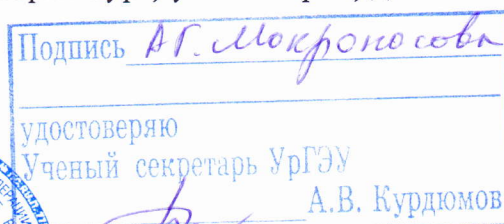 Подпись А.Г. Мокроносова
удостоверяю
Ученый секретарь УрГЭУ
А.В. Курдюмов